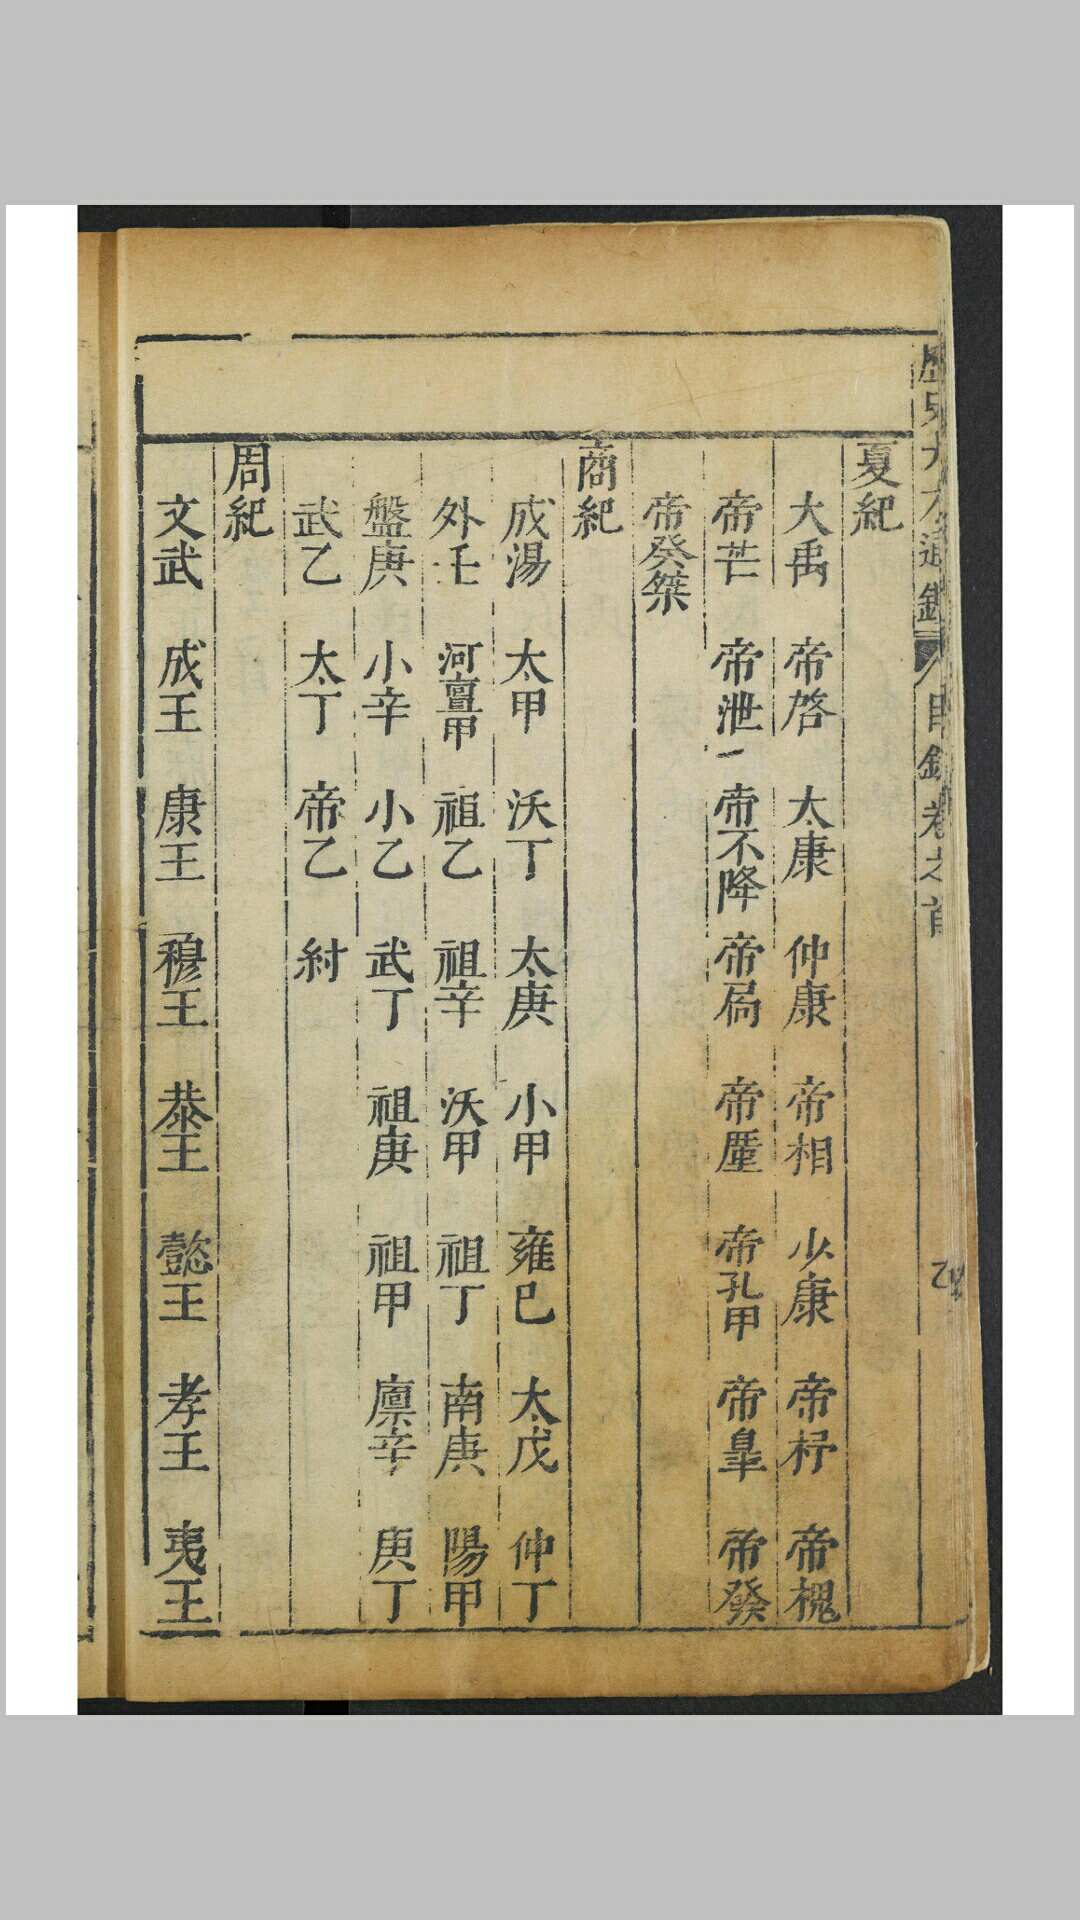 夏紀
大禹 帝啓 太康 仲康 帝相 少康 帝杼 帝槐
帝芒 帝泄 帝不降 帝扃 帝廑 帝孔甲 帝皐 帝發
帝癸桀
商紀
成湯 太甲 沃丁 太庚 小甲 雍巳 太戊 仲丁
外壬 河亶甲 祖乙 祖辛 沃甲 祖丁 南庚 陽甲
盤庚 小辛 小乙 武丁 祖庚 祖甲 廪辛 庚丁
武乙 太丁 帝乙 紂
周紀
文武 成王 康王 穆王 恭王 懿王 孝王 夷王